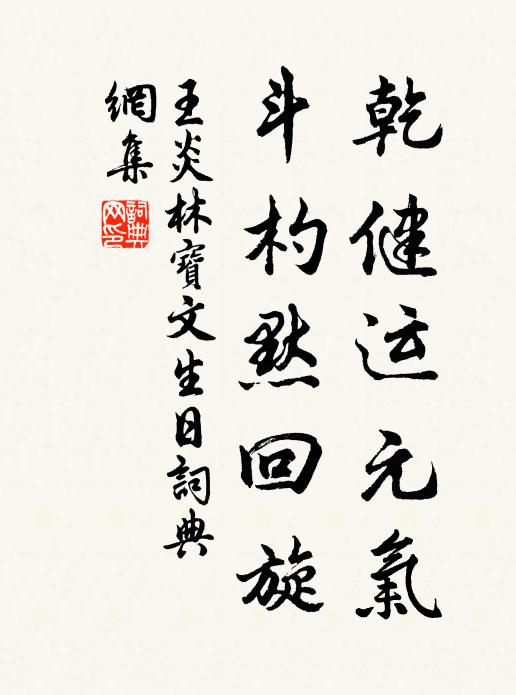 乾健运元氣
斗杓默回旋
王炎林寶文生日詞典
網集
詞典网印